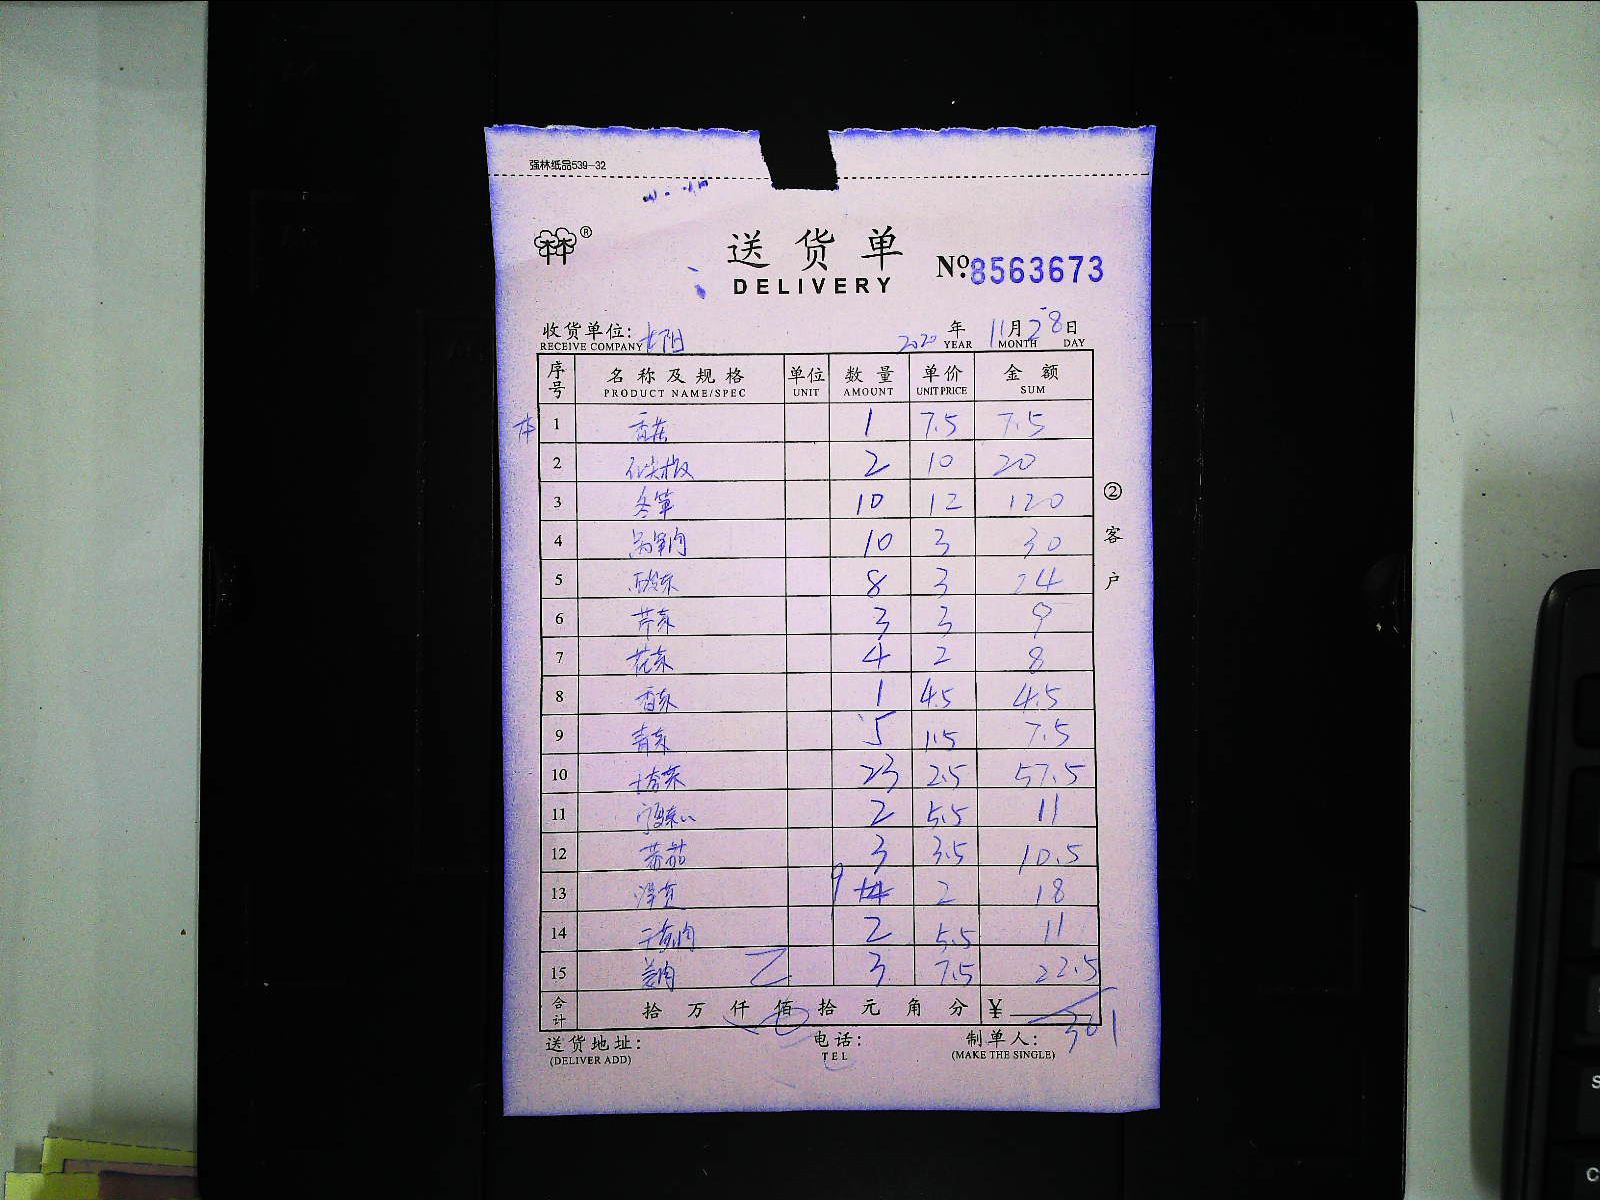 强林纸品539-32
®
送货单
DELIVERY
Nº:8563673
收货单位: 2020年11月28日
RECEIVE COMPANY YEAR MONTH DAY
序号 名称及规格 单位 数量 单价 金额
PRODUCT NAME/SPEC UNIT AMOUNT UNIT PRICE SUM
1 香菇 1 7.5 7.5
2 2 10 20
3 冬笋 10 12 120
4 10 3 30
5 8 3 24
6 芹菜 3 3 9
7 花菜 4 2 8
8 香菜 1 4.5 4.5
9 青菜 5 1.5 7.5
10 23 2.5 57.5
11 2 5.5 11
12 蕃茄 3 3.5 10.5
13 9 2 18
14 2 5.5 11
15 3 7.5 22.5
合计 拾万仟佰拾元角分 ¥ 361
送货地址: 电话: 制单人:
(DELIVER ADD) TEL (MAKE THE SINGLE)
②客户